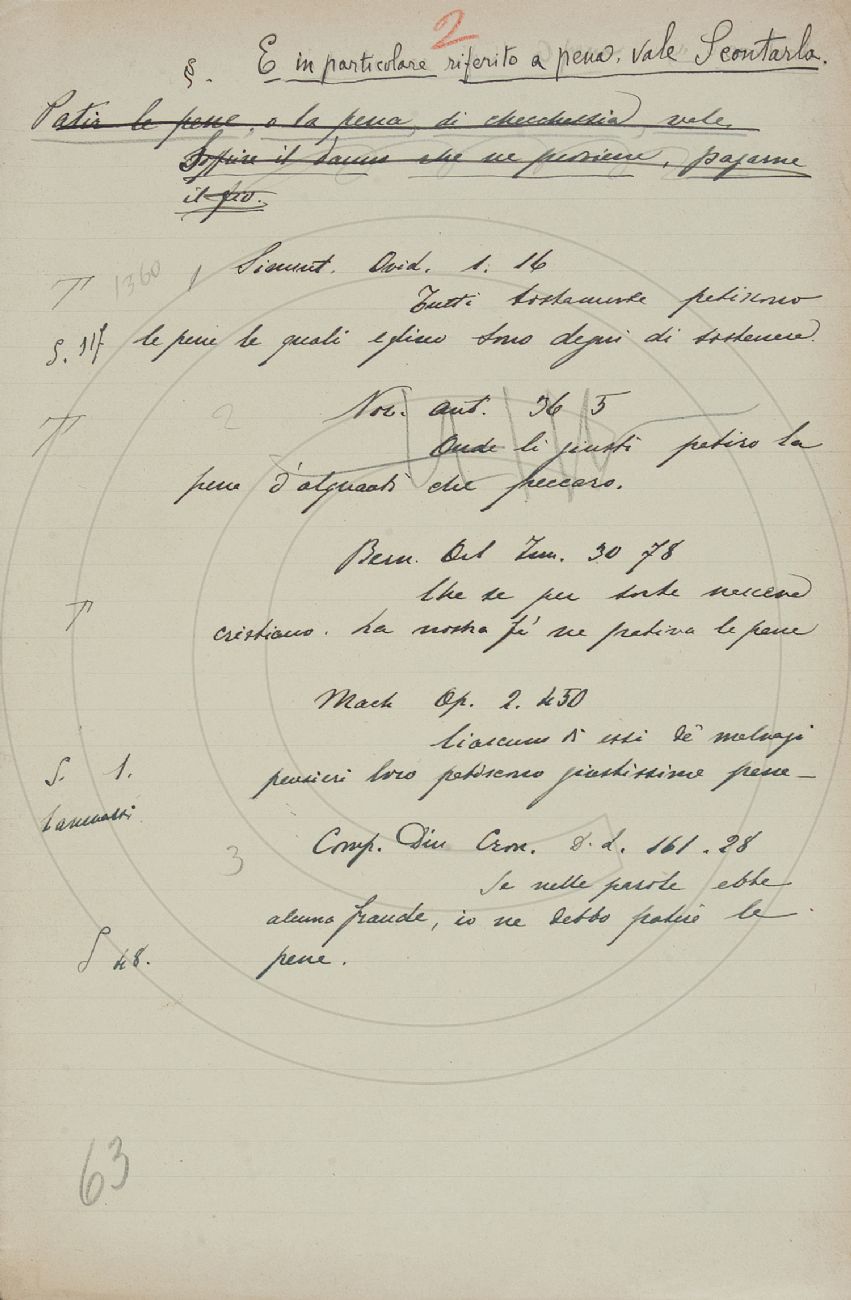 2
§. E in particolare riferito a pena, vale Scontarla.
Patir le pene, o la pena, di checchessia, vale,
Soffrire il danno che ne proviene, pagarne
il fio.
T 1360 1 Simint. Ovid. 1. 16
Tutti tostamente patiscono
S. 117 le pene le quali eglino sono degni di sostenere.
T 2 Nov. ant. 36 5
Onde li giusti patiro la
pena d'alquanti che peccaro.
Bern. Orl. Inn. 30 78
Che se per sorte nascene
T cristiano. La nostra fè ne pativa le pene
Mach Op. 2. 450
Ciascuno di essi de' malvagi
S. 1. pensieri loro patiscono giustissime pene
3 Comp. Din Cron. D. L. 161. 28
Se nelle parole ebbe
alcuna fraude, io ne debbo patire le
S 48. pene.
63